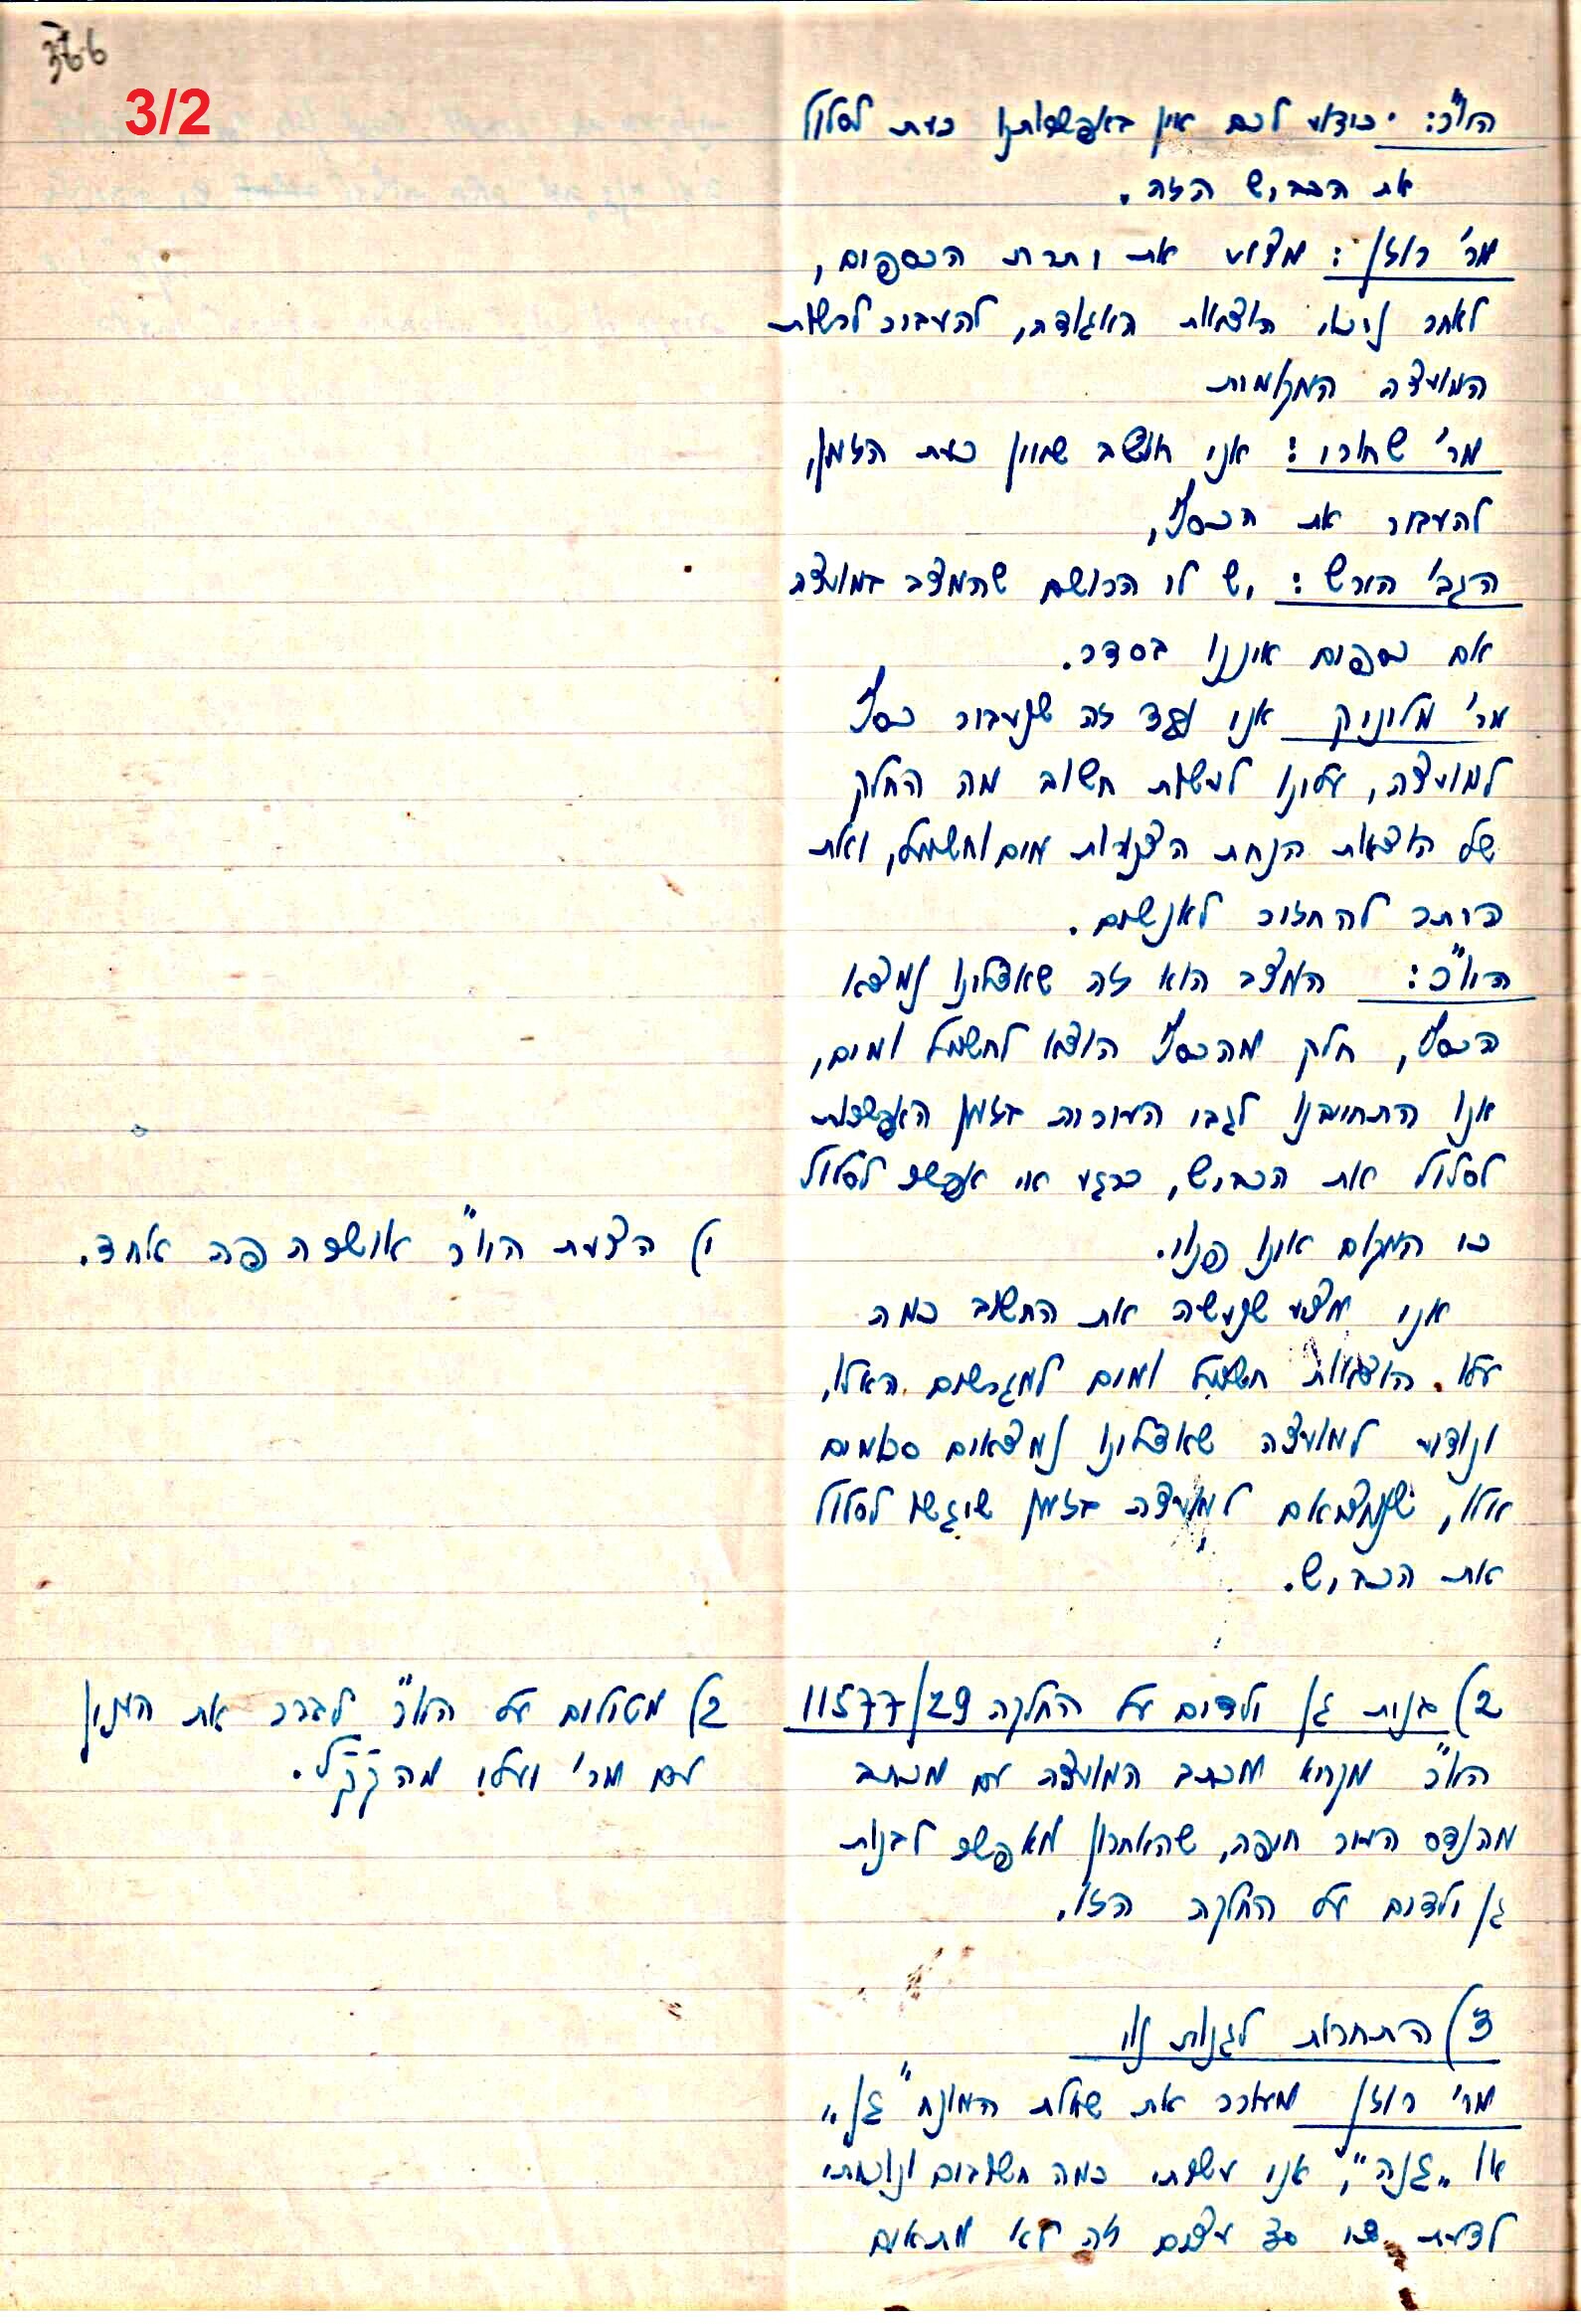 366
3/2
היו"ר: כידוע לכם אין באפשרותנו כעת לסלול
את הכביש הזה.
מר' רוזן: מציע את יתרת הכספים,
לאחר ניכוי הוצאות האגודה, להעביר לרשות
המועצה המקומית
מר' שחורי: אני חושב שאין כעת הזמן,
להעביר את הכסף,
הגב' הירש: יש לי הרושם שהמצב במועצה
עם כספים איננו בסדר.
מר' מלניק אני נגד זה שנעביר כסף
למועצה, עלינו לעשות חשוב מה החלק
של הוצאות הנחת הצנורות מים וחשמל, ואת
היתר להחזיר לאנשים.
היו"ר: המצב הוא זה שאצלינו נמצא
הכסף, חלק מהכסף הוצא לחשמל ומים,
אנו התחייבנו לגבי העיריה בזמן האפשרות
לסלול את הכביש, כרגע אי אפשר לסלול
כי המקום אינו פנוי.
אני מציע שנעשה את החשוב כמה
עלו הוצאות חשמל ומים למגרשים האלו,
ונודיע למועצה שאצלינו נמצאים סכומים
אלו, שנמציאם למועצה בזמן שיגשו לסלול
את הכביש.
1) הצעת היו"ר אושרה פה אחד.
2) בנית גן ילדים על החלקה 11577/29
היו"ר מקריא מכתב המועצה עם מכתב
מהנדס העיר חיפה, שהאחרון מאפשר לבנות
גן ילדים על החלקה הזו.
2) מטילים על היו"ר לברר את הענין
עם מר' ועלי מהקק"ל.
3) התחרות לגנות נוי
מר' רוזן מעורר את שאלת המונח "גן"
או "גנה", אני עשיתי כמה חשובים ונוכחתי
לדעת כי 30 עצים זה לא מתאים